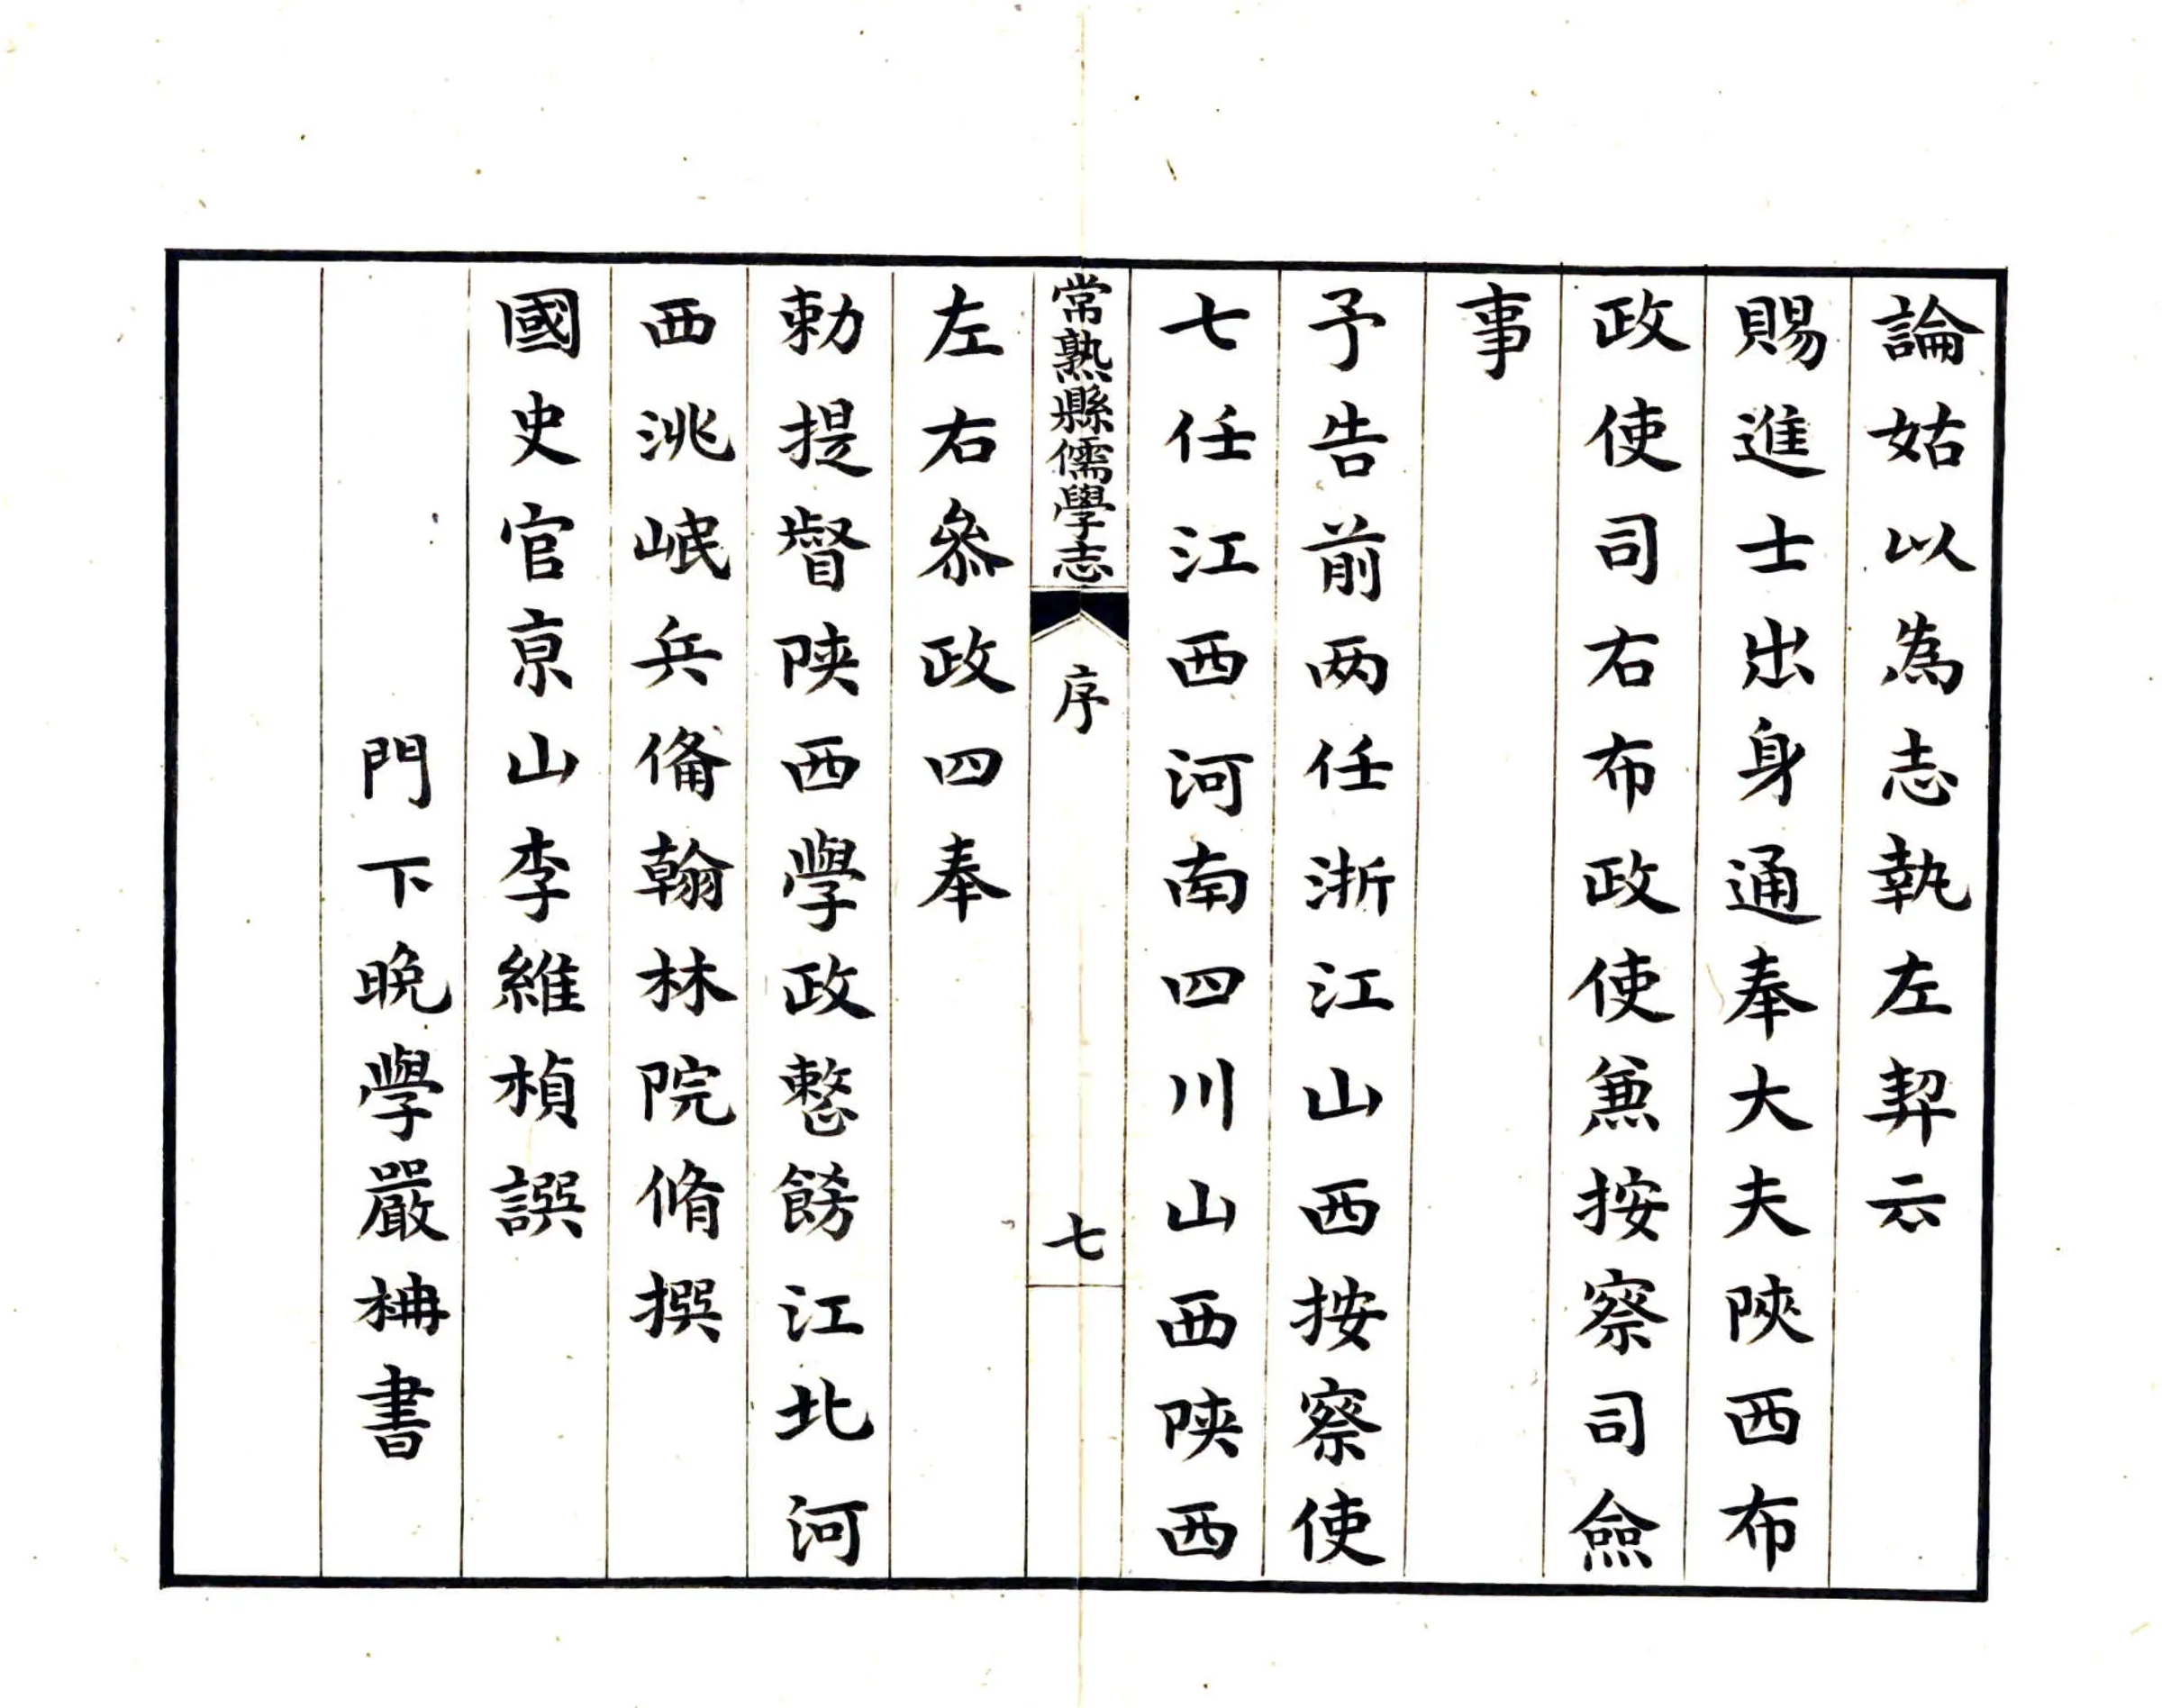 論姑以為志執左契云
賜進士出身通奉大夫陝西布
政使司右布政使兼按察司僉
事
予告前两任浙江山西按察使
七任江西河南四川山西陕西
常熟縣儒學志
序
七
左右叅政四奉
勅提督陕西學政整餝江北河
西洮岷兵俻翰林院脩撰
國史官京山李維楨譔
門下晚學嚴柟書